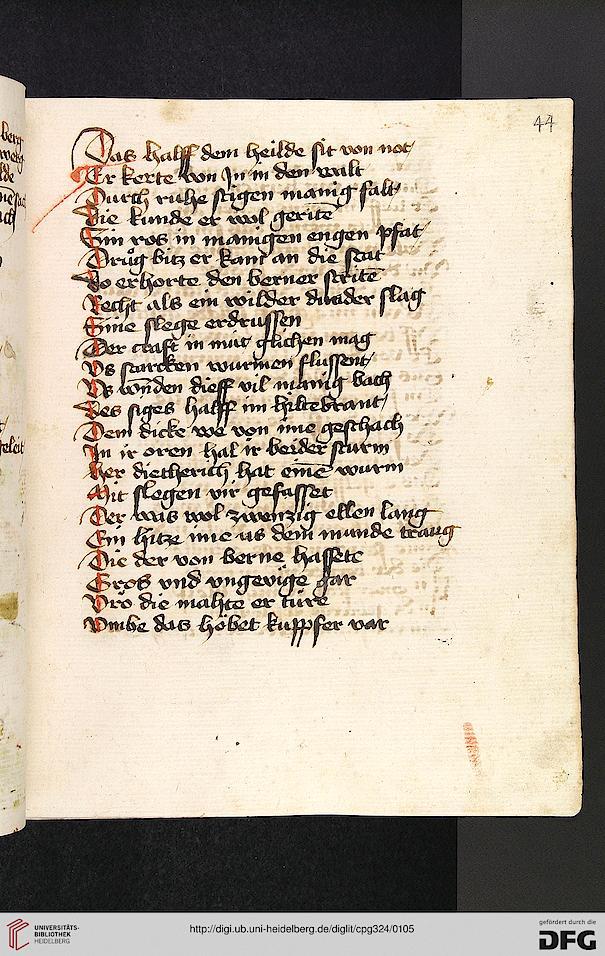 44
Das halff dem heilde sit von not
Er kerte von Jn in den walt
Durch ruhe stigen manig falt
Die kunde er wol geritē
Sin ros in manigen engen pfat
Drůg bitz er kam an die stat
Do erhorte den berner stritē
Recht als ein wilder dunder slag
Sine slege erdrussen
Der craft in mut glichen mag
Vs starcken wurmen flussent
Vs wūden dieff vil manig bach
Des siges halff im hiltebrant
Dem dicke we von ime geschach
In ir oren hal ir beider sturm
Her dietherich hat einē wurm
Mit slegen vir gefasset
Der was wol zwenzig ellen lang
Ein hitze ime us dem munde trang
Die der von berne hassete
Gros vnd vngevüge gar
Vrō die mahte er türe
Vmbe das höbet kuppfer var
berg
lde
geleit
UNIVERSITÄTS-
BIBLIOTHEK
HEIDELBERG
http://digi.ub.uni-heidelberg.de/diglit/cpg324/0105
gefördert durch die
DFG